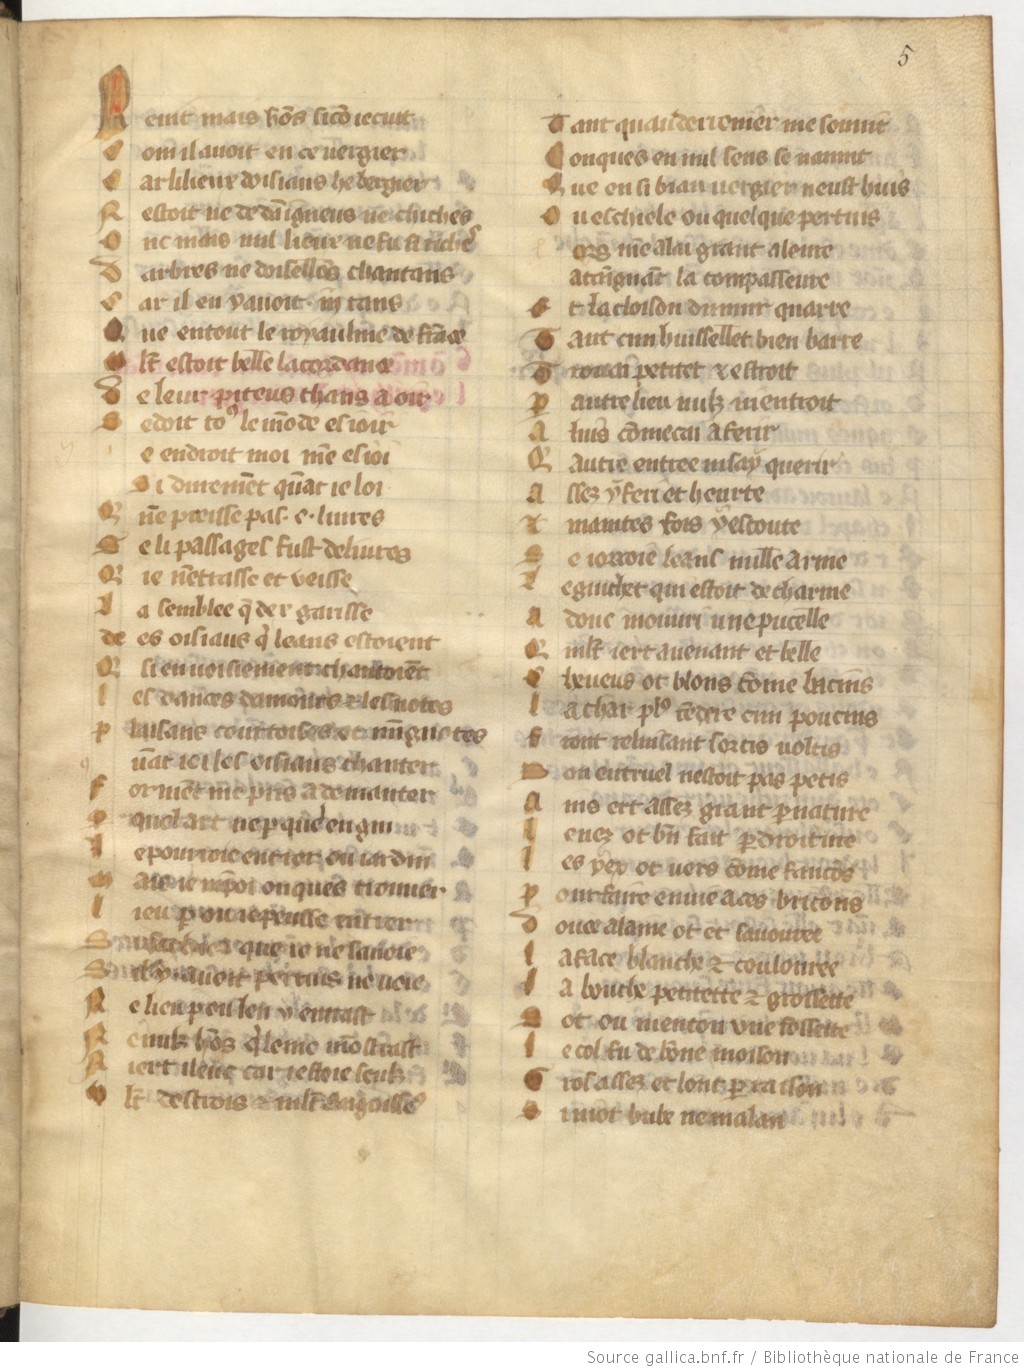 5
N euit mais hōs sicō ie cuit
C om il auoit en ce uergier
C ar li lieux doisiaus hebergier
N estoit ne de dāigneus ne chiches
O nc mais nul lieux ne fu si riches
D arbres ne doisellōs chantans
C ar il en y auoit .iii. tans
Q ue en tout le royaulme de frāce
M lt estoit belle lacordance
D e leur piteus chans a oir
S edoit to9 le mōde esioir
e endroit moi mē esioi
S i durement quāt ie loi
Q nē preisse pas .c. liures
S e li passages fust deliures
Q ie nētrasse et veisse
l a semblee q̄ der garisse
de es oisiaus q̄ leans estoient
Q si enuoisiement chantoiēt
l es dances damours & les notes
p laisans courtoises et mignotes
Quāt ioi les oisiaus chanter
f ormēt me pris a demanter
p quel art ne p quel engin
l e pourroie entrer ou iardin
m ais ie ne poi onques trouuer
l ieu p ou ie peusse entrer
S achiez que ie ne sauoie
S il y auoit pertuis ne uoie
N e lieu p ou len y entrast
N e nulz hōs q̄ le me mōstrast
N iert ilenc car iestoie seulz
M lt destrois & mlt āgoisseus
T ant quau derrenier me souuint
C onques en nul sens se nauint
Q ue en si biau uergier neust huis
O u eschiele ou quelque pertuis
ors mē alai grant aleure
acaignāt la compasseure
E t la cloison du mur quarre
T ant cun huissellet bien barre
T rouai petitet & estroit
p autre lieu nulz nientroit
A lhuis cōmecai a ferir
Q autre entree ni say querir
A ssez y feri et heurte
& maintes fois y escoute
S e iorroie leans nulle arme
l e guichet qui estoit de charme
a donc mouuri une pucelle
Q mlt iert auenant et belle
C heueus ot blons cōme bacins
l a char pl9 tēdere cun poucins
f ront reluisant sorcis uoltis
S on entruel nestoit pas petis
a ins ert assez grant p nature
l e nez ot bn fait p droiture
l es yex ot uers cōme faucōs
p our faire enuie a ces bricons
D ouce alaine ot et sauouree
l a face blanche & coulouree
l a bouche petitette & grossette
S ot ou menton vne fossette
l e col fu de bōne moison
G ros assez et lonc p raison
S i niot bube ne malan
Source gallica.bnf.fr / Bibliothèque nationale de France